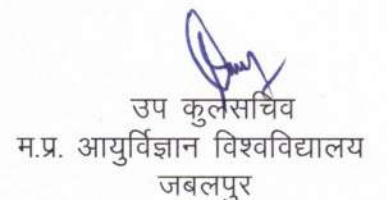 उप कुलसचिव
म.प्र. आयुर्विज्ञान विश्वविद्यालय
जबलपुर